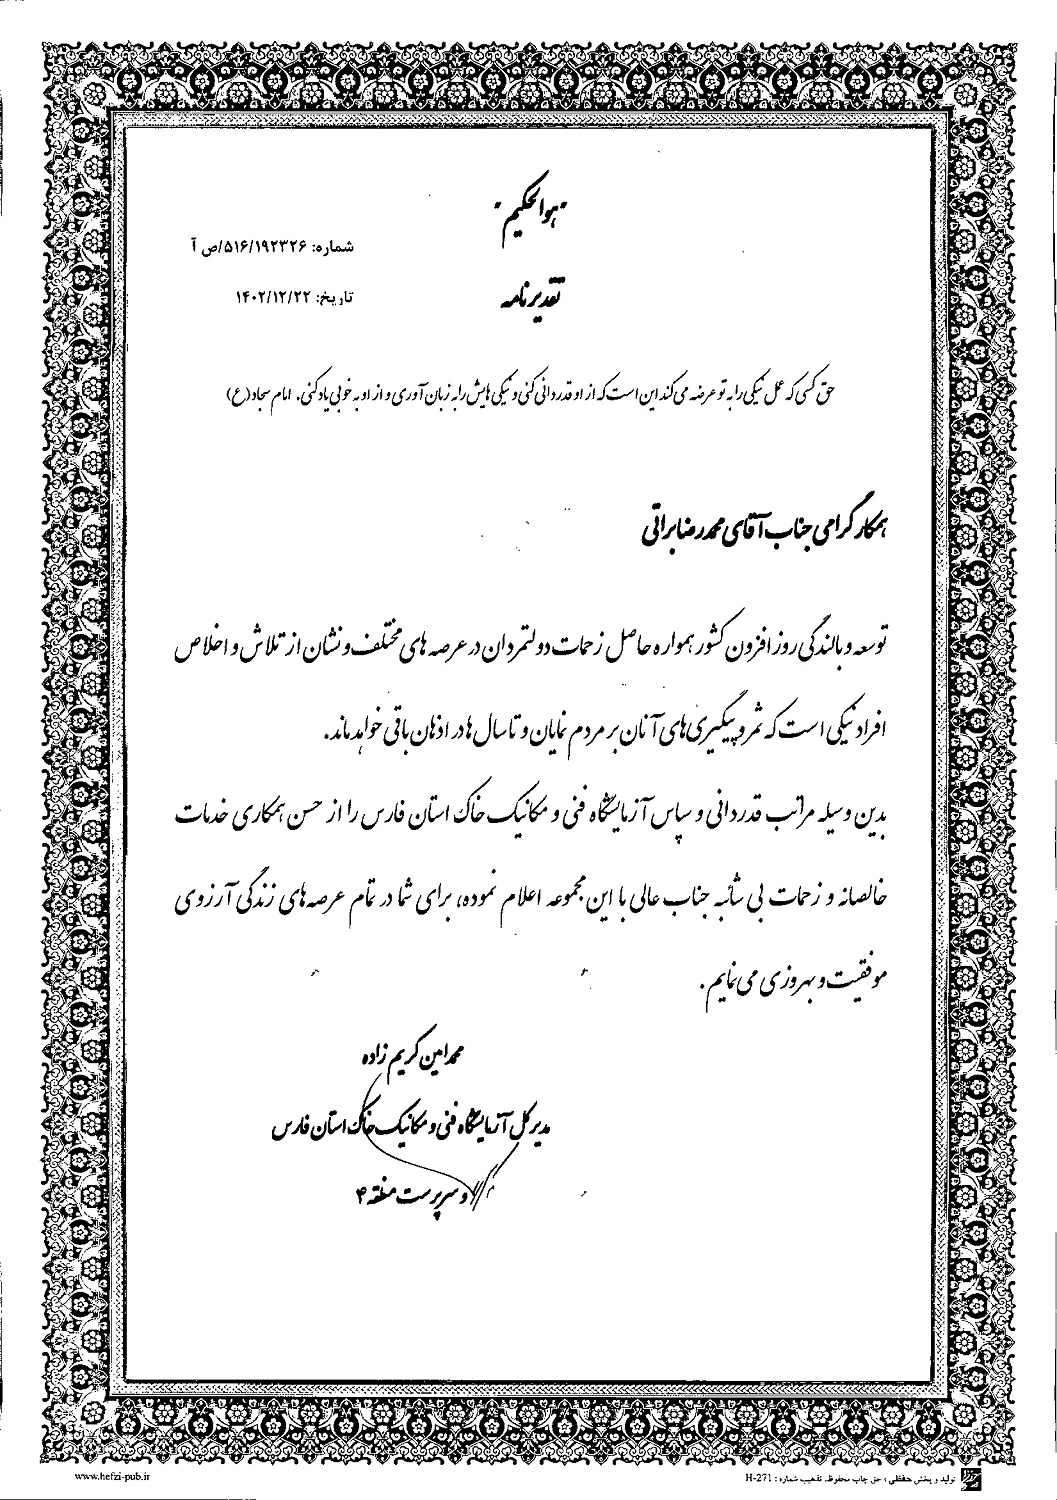 "هوالحکیم"
شماره: ۵۱۶/۱۹۲۳۲۶/ص آ
تقدیرنامه
تاریخ: ۱۴۰۲/۱۲/۲۲
حق کسی که عمل نیکی را به تو عرضه می کند این است که از او قدردانی کنی و نیکی هایش را به زبان آوری و از او به خوبی یاد کنی. امام سجاد(ع)
همکار گرامی جناب آقای محمدرضا براتی
توسعه و بالندگی روز افزون کشور همواره حاصل زحمات دولتمردان در عرصه های مختلف و نشان از تلاش و اخلاص
افراد نیکی است که ثمر و پیگیری های آنان بر مردم نمایان و تا سال ها در اذهان باقی خواهد ماند.
بدین وسیله مراتب قدردانی و سپاس آزمایشگاه فنی و مکانیک خاک استان فارس را از حسن همکاری خدمات
خالصانه و زحمات بی شائبه جناب عالی با این مجموعه اعلام نموده، برای شما در تمام عرصه های زندگی آرزوی
موفقیت و بهروزی می نمایم.
محمد امین کریم زاده
مدیر کل آزمایشگاه فنی و مکانیک خاک استان فارس
و سرپرست منطقه ۴
تولید و پخش حفظی ؛ حق چاپ محفوظ. تذهیب شماره : H-271
www.hefzi-pub.ir